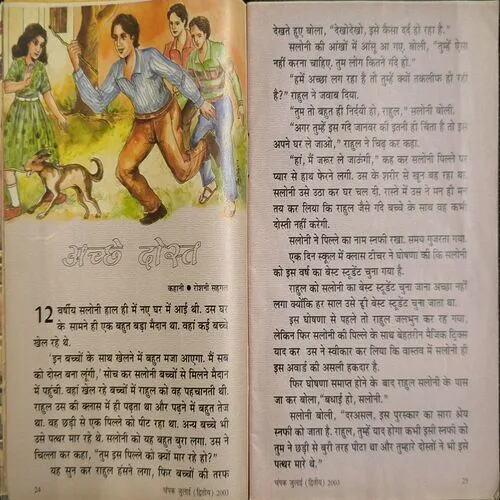 अच्छे दोस्त
कहानी • रोशनी सहगल
12 वर्षीय सलोनी हाल ही में नए घर में आई थी. उस घर
के सामने ही एक बहुत बड़ा मैदान था. वहां कई बच्चे
खेल रहे थे.
'इन बच्चों के साथ खेलने में बहुत मजा आएगा. मैं सब
को दोस्त बना लूंगी,' सोच कर सलोनी बच्चों से मिलने मैदान
में पहुंची. वहां खेल रहे बच्चों में राहुल को वह पहचानती थी.
राहुल उस की क्लास में ही पढ़ता था और पढ़ने में बहुत तेज
था. वह छड़ी से एक पिल्ले को पीट रहा था. अन्य बच्चे भी
उसे पत्थर मार रहे थे. सलोनी को यह बहुत बुरा लगा. उस ने
चिल्ला कर कहा, "तुम इस पिल्ले को क्यों मार रहे हो?"
यह सुन कर राहुल हंसने लगा, फिर बच्चों की तरफ
24
चंपक जुलाई (द्वितीय) 2003
देखते हुए बोला, "देखोदेखो, इसे कैसा दर्द हो रहा है."
सलोनी की आंखों में आंसू आ गए, बोली, "तुम्हें ऐसा
नहीं करना चाहिए. तुम लोग कितने गंदे हो."
"हमें अच्छा लग रहा है तो तुम्हें क्यों तकलीफ हो रही
है?" राहुल ने जवाब दिया.
"तुम तो बहुत ही निर्दयी हो, राहुल," सलोनी बोली.
"अगर तुम्हें इस गंदे जानवर की इतनी ही चिंता है तो इसे
अपने घर ले जाओ," राहुल ने चिढ़ कर कहा.
"हां, मैं जरूर ले जाऊंगी," कह कर सलोनी पिल्ले पर
प्यार से हाथ फेरने लगी. उस के शरीर से खून बह रहा था.
सलोनी उसे उठा कर घर चल दी. रास्ते में उस ने मन ही मन
तय कर लिया कि राहुल जैसे गंदे बच्चे के साथ वह कभी
दोस्ती नहीं करेगी.
सलोनी ने पिल्ले का नाम स्नफी रखा. समय गुजरता गया.
एक दिन स्कूल में क्लास टीचर ने घोषणा की कि सलोनी
को इस वर्ष का बेस्ट स्टूडेंट चुना गया है.
राहुल को सलोनी का बेस्ट स्टूडेंट चुना जाना अच्छा नहीं
लगा क्योंकि हर साल उसे ही बेस्ट स्टूडेंट चुना जाता था.
इस घोषणा से पहले तो राहुल जलभुन कर रह गया,
लेकिन फिर सलोनी की पिल्ले के साथ बेहतरीन मैजिक ट्रिक्स
याद कर उस ने स्वीकार कर लिया कि वास्तव में सलोनी ही
इस अवार्ड की असली हकदार है.
फिर घोषणा समाप्त होने के बाद राहुल सलोनी के पास
जा कर बोला, "बधाई हो, सलोनी."
सलोनी बोली, "दरअसल, इस पुरस्कार का सारा श्रेय
स्नफी को जाता है. राहुल, तुम्हें याद होगा कभी इसी स्नफी को
तुम ने छड़ी से बुरी तरह पीटा था और तुम्हारे दोस्तों ने भी इसे
पत्थर मारे थे."
चंपक जुलाई (द्वितीय) 2003
25